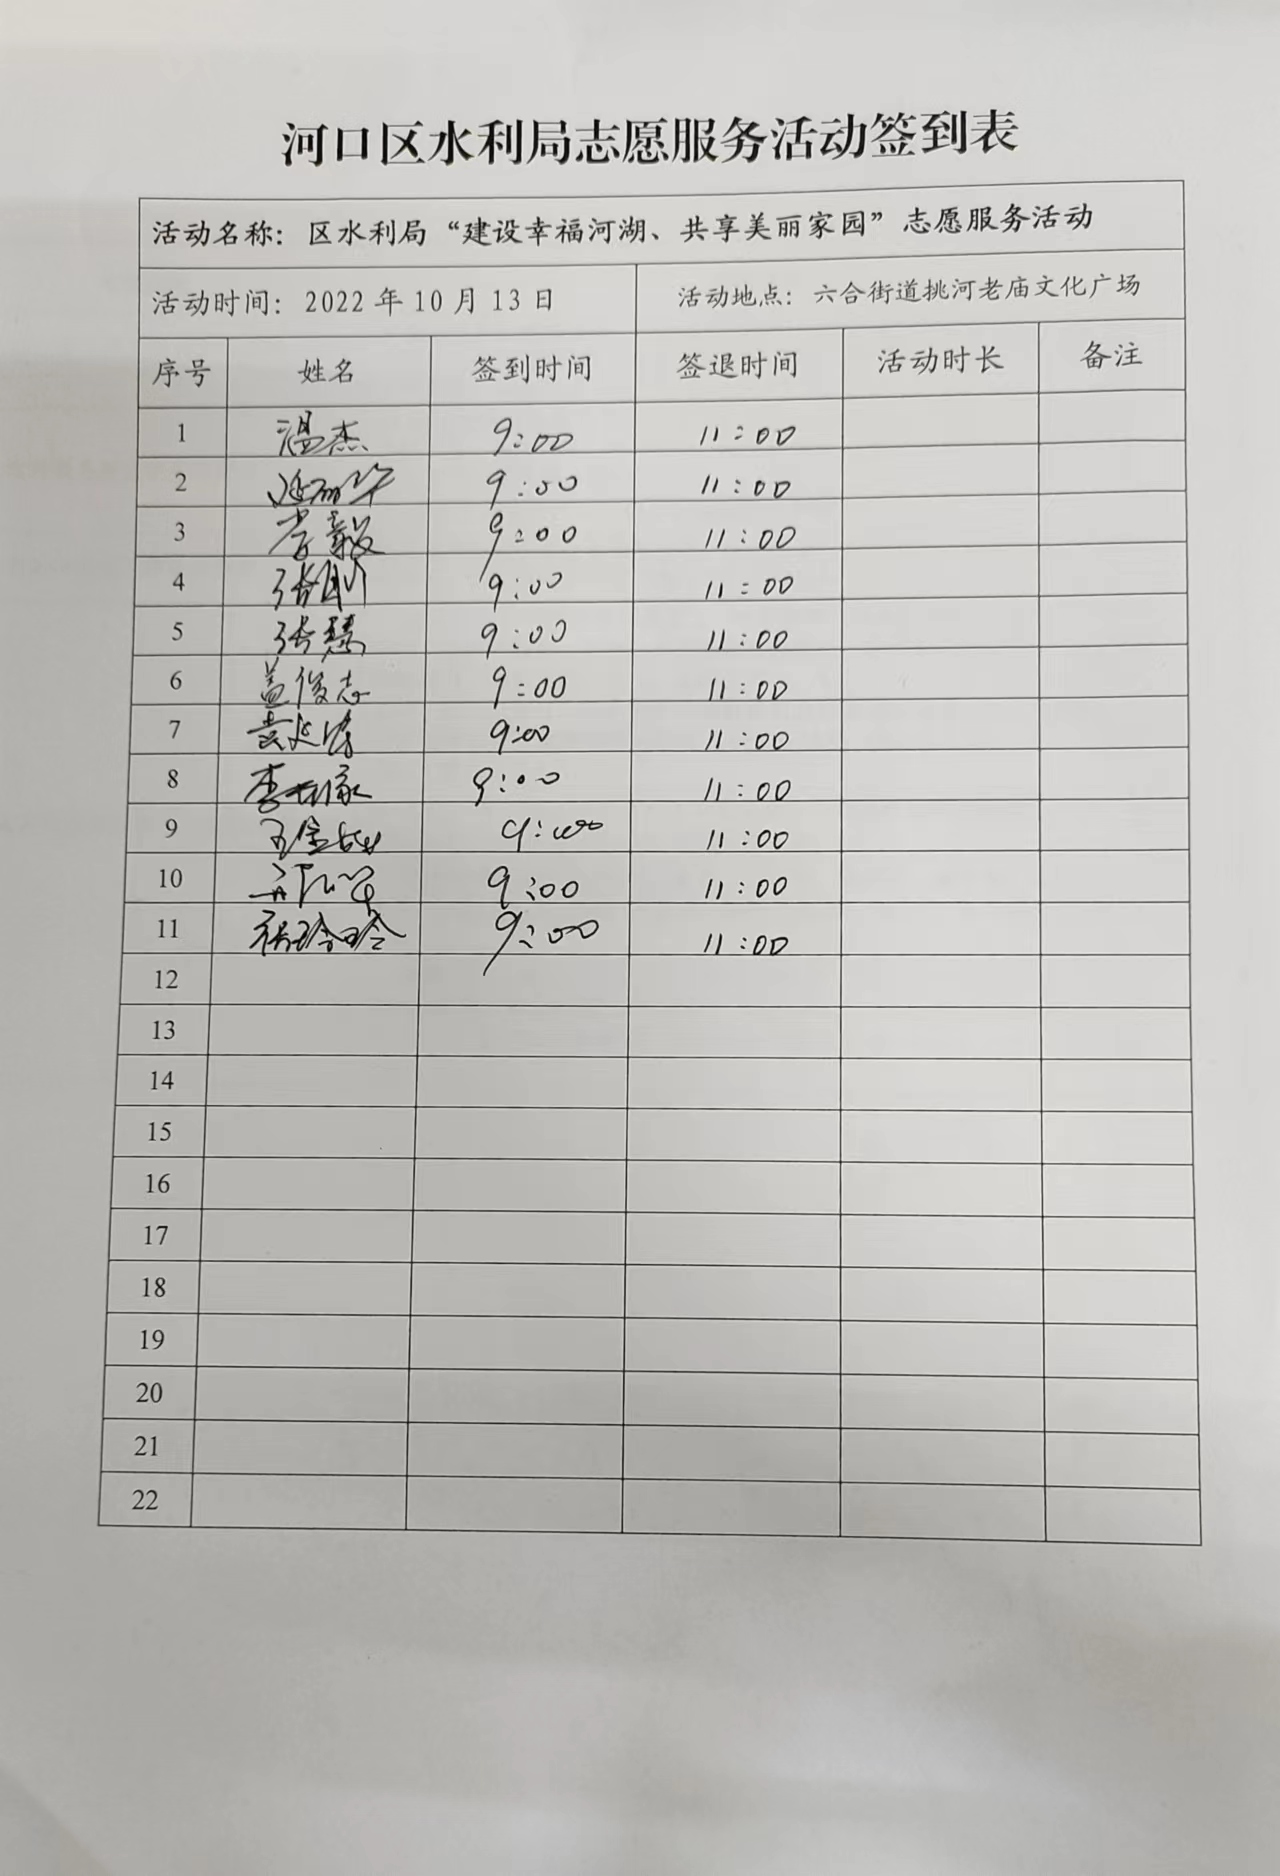 河口区水利局志愿服务活动签到表
活动名称：区水利局“建设幸福河湖、共享美丽家园”志愿服务活动
活动时间：2022年10月13日 活动地点：六合街道挑河老庙文化广场
序号 姓名 签到时间 签退时间 活动时长 备注
1 温杰 9:00 11:00
2 9:00 11:00
3 9:00 11:00
4 张 9:00 11:00
5 张慧 9:00 11:00
6 盖俊志 9:00 11:00
7 袁延 9:00 11:00
8 李 9:00 11:00
9 王金 9:00 11:00
10 9:00 11:00
11 玲玲 9:00 11:00
12
13
14
15
16
17
18
19
20
21
22